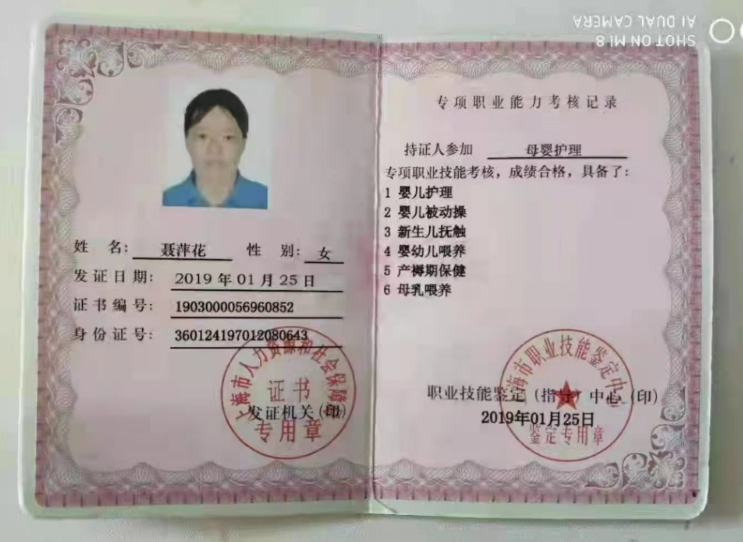 SHOT ON MI 8
AI DUAL CAMERA
姓 名： 聂萍花 性 别： 女
发证日期： 2019 年 01 月 25 日
证书编号： 1903000056960852
身份证号： 360124197012080643
上海市人力资源和社会保障局
证书
发证机关（印）
专用章
专项职业能力考核记录
持证人参加 母婴护理
专项职业技能考核，成绩合格，具备了：
1 婴儿护理
2 婴儿被动操
3 新生儿抚触
4 婴幼儿喂养
5 产褥期保健
6 母乳喂养
上海市职业技能鉴定中心
职业技能鉴定（指导）中心（印）
2019年01月25日
鉴定专用章